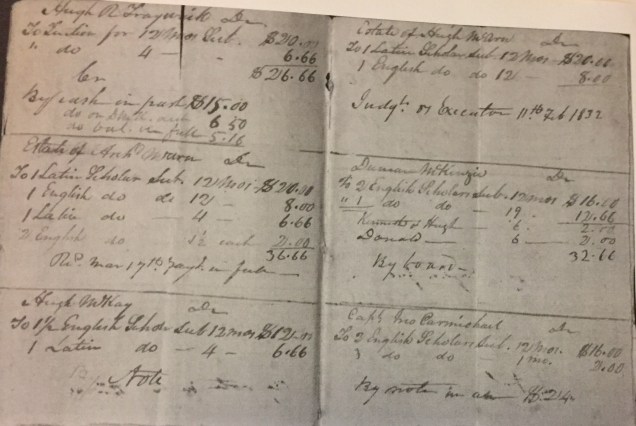 Hugh R. Trawick Dr
To Tuition for 12 Mos Sub. $20.00
" do 4 — 6.66
$26.66
Cr
By cash in part $15.00
do on 6 50
do Bal. in full 5.16
Estate of Archd McEarn Dr
To 1 Latin Scholar Sub. 12 Mos. $20.00
1 English do do 12 — 8.00
1 Latin do — 4 — 6.66
2 English do 1½ each 2.00
36.66
Recd. Mar 17th in full
Hugh McKay Dr
To 1½ English Schol. Sub 12 mos $12.00
1 Latin do — 4 — 6.66
By Note
Estate of Hugh McEarn Dr
To 1 Latin Scholar Sub 12 Mos $20.00
1 English do do 12 — 8.00
Judgt. vs Executor 11th Feb 1832
Duncan McKenzie Dr
To 2 English Scholars Sub. 12 mos $16.00
" 1 do do — 19 — 12.66
Kenneth & Hugh — 6 2.00
Donald — 6 — 2.00
32.66
By
Capt. Jno Carmichael Dr
To 2 English Scholars Sub. 12 Mos. $16.00
do do 1 mo. 2.00
By note in $24